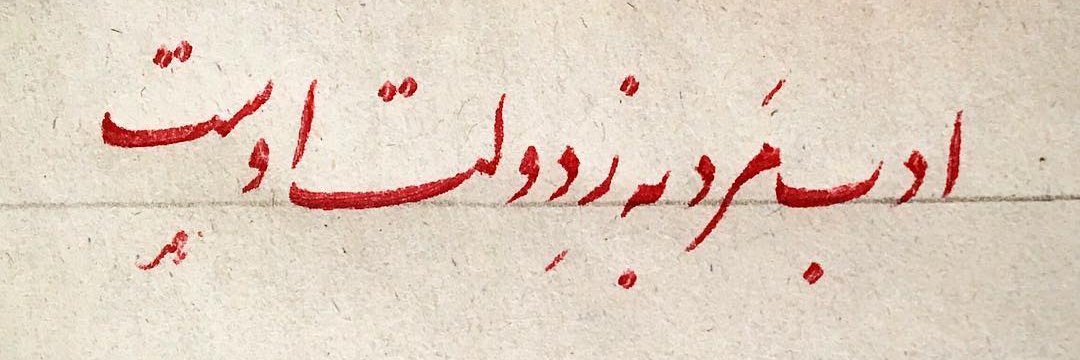 ادب مَرد بِه ز دولت اوست